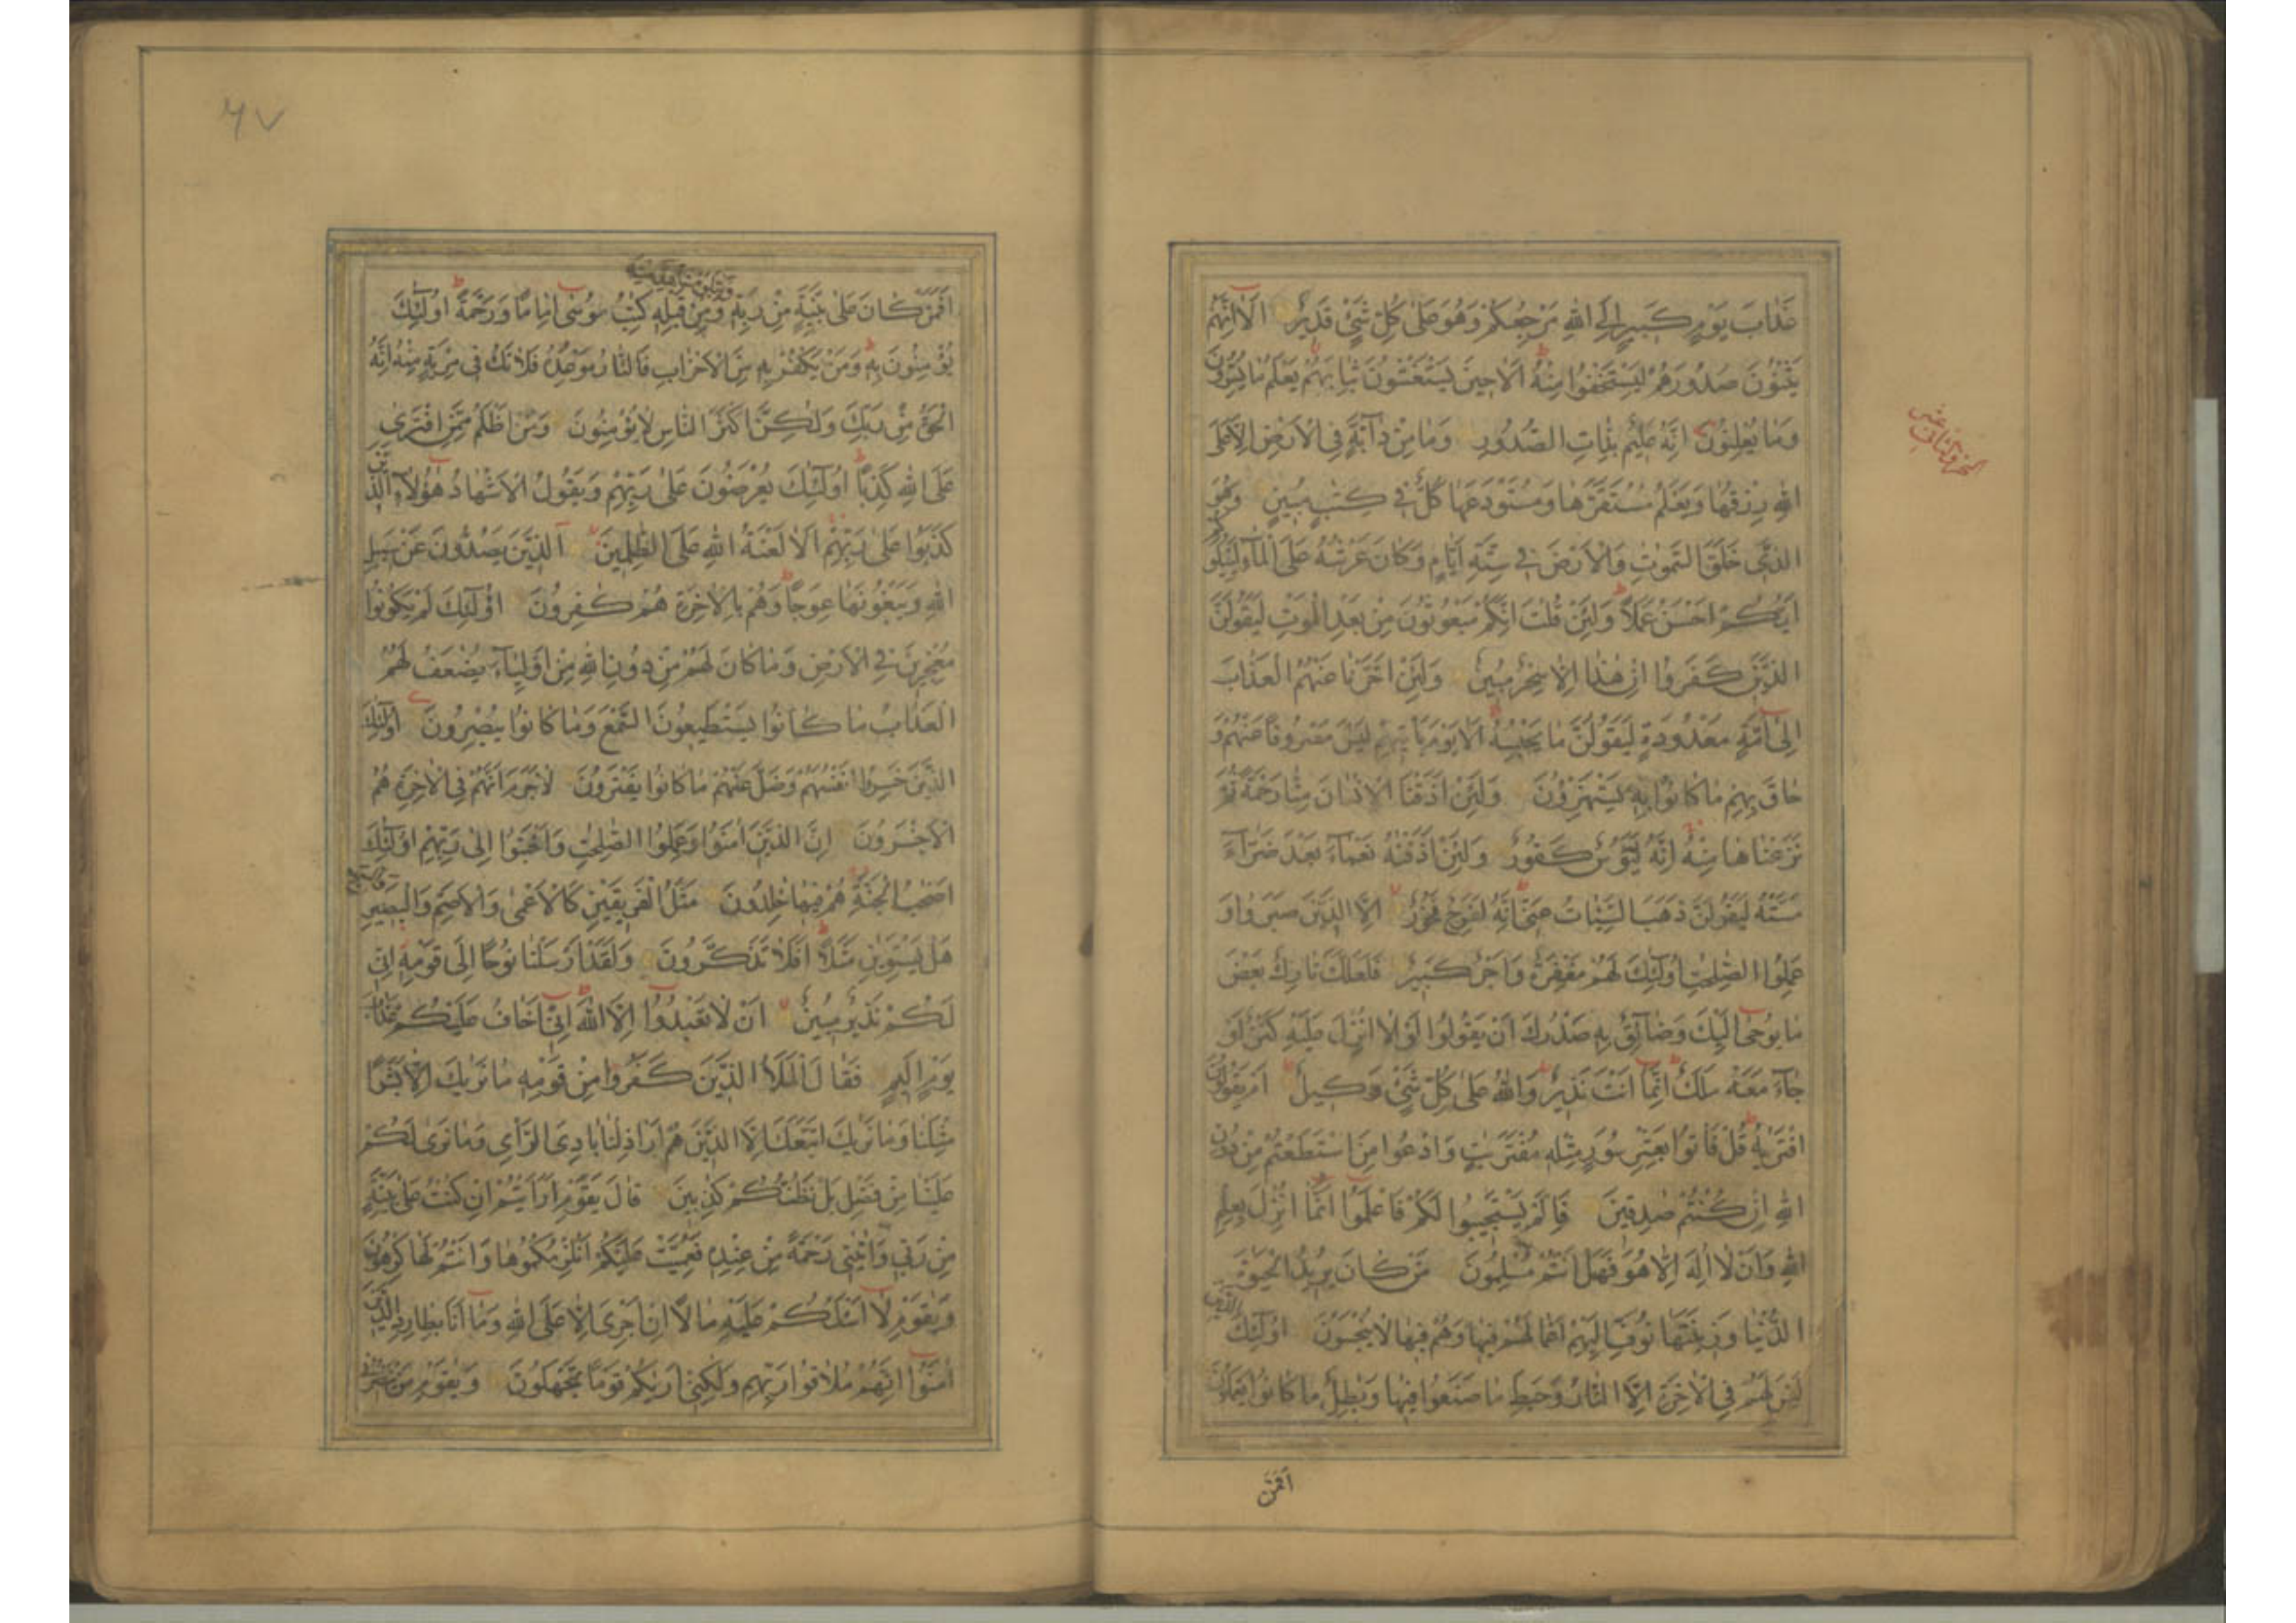 عَذَابَ يَوْمٍ كَبِيرٍ اِلَى اللهِ مَرْجِعُكُمْ وَهُوَ عَلٰى كُلِّ شَیْءٍ قَدِيرٌ اَلَا اِنَّهُمْ
يَثْنُوْنَ صُدُورَهُمْ لِيَسْتَخْفُوا مِنْهُ اَلَا حِينَ يَسْتَغْشُونَ ثِيَابَهُمْ يَعْلَمُ مَا يُسِرُّونَ
وَمَا يُعْلِنُونَ اِنَّهُ عَلِيمٌ بِذَاتِ الصُّدُورِ وَمَا مِنْ دَآبَّةٍ فِى الْاَرْضِ اِلَّا عَلَى
اللهِ رِزْقُهَا وَيَعْلَمُ مُسْتَقَرَّهَا وَمُسْتَوْدَعَهَا كُلٌّ فِى كِتٰبٍ مُبِينٍ وَهُوَ
الَّذِى خَلَقَ السَّمٰوٰتِ وَالْاَرْضَ فِى سِتَّةِ اَيَّامٍ وَكَانَ عَرْشُهُ عَلَى الْمَآءِ لِيَبْلُوَكُمْ
اَيُّكُمْ اَحْسَنُ عَمَلًا وَلَئِنْ قُلْتَ اِنَّكُمْ مَبْعُوثُونَ مِنْ بَعْدِ الْمَوْتِ لَيَقُولَنَّ
الَّذِينَ كَفَرُوا اِنْ هٰذَا اِلَّا سِحْرٌ مُبِينٌ وَلَئِنْ اَخَّرْنَا عَنْهُمُ الْعَذَابَ
اِلٰى اُمَّةٍ مَعْدُودَةٍ لَيَقُولُنَّ مَا يَحْبِسُهُ اَلَا يَوْمَ يَاْتِيهِمْ لَيْسَ مَصْرُوفًا عَنْهُمْ وَ
حَاقَ بِهِمْ مَا كَانُوا بِهِ يَسْتَهْزِؤُنَ وَلَئِنْ اَذَقْنَا الْاِنْسَانَ مِنَّا رَحْمَةً ثُمَّ
نَزَعْنَاهَا مِنْهُ اِنَّهُ لَيَؤُسٌ كَفُورٌ وَلَئِنْ اَذَقْنٰهُ نَعْمَآءَ بَعْدَ ضَرَّآءَ
مَسَّتْهُ لَيَقُولَنَّ ذَهَبَ السَّيِّئَاتُ عَنِّى اِنَّهُ لَفَرِحٌ فَخُورٌ اِلَّا الَّذِينَ صَبَرُوا وَ
عَمِلُوا الصّٰلِحٰتِ اُولٰٓئِكَ لَهُمْ مَغْفِرَةٌ وَاَجْرٌ كَبِيرٌ فَلَعَلَّكَ تَارِكٌ بَعْضَ
مَا يُوحٰى اِلَيْكَ وَضَآئِقٌ بِهِ صَدْرُكَ اَنْ يَقُولُوا لَوْلَا اُنْزِلَ عَلَيْهِ كَنْزٌ اَوْ
جَآءَ مَعَهُ مَلَكٌ اِنَّمَا اَنْتَ نَذِيرٌ وَاللهُ عَلٰى كُلِّ شَىْءٍ وَكِيلٌ اَمْ يَقُولُونَ
افْتَرٰيهُ قُلْ فَاْتُوا بِعَشْرِ سُوَرٍ مِثْلِهِ مُفْتَرَيٰتٍ وَادْعُوا مَنِ اسْتَطَعْتُمْ مِنْ دُونِ
اللهِ اِنْ كُنْتُمْ صٰدِقِينَ فَاِلَّمْ يَسْتَجِيبُوا لَكُمْ فَاعْلَمُوٓا اَنَّمَا اُنْزِلَ بِعِلْمِ
اللهِ وَاَنْ لَا اِلٰهَ اِلَّا هُوَ فَهَلْ اَنْتُمْ مُسْلِمُونَ مَنْ كَانَ يُرِيدُ الْحَيٰوةَ
الدُّنْيَا وَزِينَتَهَا نُوَفِّ اِلَيْهِمْ اَعْمَالَهُمْ فِيهَا وَهُمْ فِيهَا لَا يُبْخَسُونَ اُولٰٓئِكَ الَّذِينَ
لَيْسَ لَهُمْ فِى الْاٰخِرَةِ اِلَّا النَّارُ وَحَبِطَ مَا صَنَعُوا فِيهَا وَبٰطِلٌ مَا كَانُوا يَعْمَلُونَ
اَفَمَنْ
٦٧
وَيَتْلُوهُ شَاهِدٌ مِنْهُ
اَفَمَنْ كَانَ عَلٰى بَيِّنَةٍ مِنْ رَبِّهِ وَمِنْ قَبْلِهِ كِتٰبُ مُوسٰٓى اِمَامًا وَرَحْمَةً اُولٰٓئِكَ
يُؤْمِنُونَ بِهِ وَمَنْ يَكْفُرْ بِهِ مِنَ الْاَحْزَابِ فَالنَّارُ مَوْعِدُهُ فَلَا تَكُ فِى مِرْيَةٍ مِنْهُ اِنَّهُ
الْحَقُّ مِنْ رَبِّكَ وَلٰكِنَّ اَكْثَرَ النَّاسِ لَا يُؤْمِنُونَ وَمَنْ اَظْلَمُ مِمَّنِ افْتَرٰى
عَلَى اللهِ كَذِبًا اُولٰٓئِكَ يُعْرَضُونَ عَلٰى رَبِّهِمْ وَيَقُولُ الْاَشْهَادُ هٰٓؤُلَآءِ الَّذِينَ
كَذَبُوا عَلٰى رَبِّهِمْ اَلَا لَعْنَةُ اللهِ عَلَى الظّٰلِمِينَ اَلَّذِينَ يَصُدُّونَ عَنْ سَبِيلِ
اللهِ وَيَبْغُونَهَا عِوَجًا وَهُمْ بِالْاٰخِرَةِ هُمْ كٰفِرُونَ اُولٰٓئِكَ لَمْ يَكُونُوا
مُعْجِزِينَ فِى الْاَرْضِ وَمَا كَانَ لَهُمْ مِنْ دُونِ اللهِ مِنْ اَوْلِيَآءَ يُضٰعَفُ لَهُمُ
الْعَذَابُ مَا كَانُوا يَسْتَطِيعُونَ السَّمْعَ وَمَا كَانُوا يُبْصِرُونَ اُولٰٓئِكَ
الَّذِينَ خَسِرُوا اَنْفُسَهُمْ وَضَلَّ عَنْهُمْ مَا كَانُوا يَفْتَرُونَ لَا جَرَمَ اَنَّهُمْ فِى الْاٰخِرَةِ هُمُ
الْاَخْسَرُونَ اِنَّ الَّذِينَ اٰمَنُوا وَعَمِلُوا الصّٰلِحٰتِ وَاَخْبَتُوا اِلٰى رَبِّهِمْ اُولٰٓئِكَ
اَصْحٰبُ الْجَنَّةِ هُمْ فِيهَا خٰلِدُونَ مَثَلُ الْفَرِيقَيْنِ كَالْاَعْمٰى وَالْاَصَمِّ وَالْبَصِيرِ وَالسَّمِيعِ
هَلْ يَسْتَوِيٰنِ مَثَلًا اَفَلَا تَذَكَّرُونَ وَلَقَدْ اَرْسَلْنَا نُوحًا اِلٰى قَوْمِهِ اِنِّى
لَكُمْ نَذِيرٌ مُبِينٌ اَنْ لَا تَعْبُدُوٓا اِلَّا اللهَ اِنِّىٓ اَخَافُ عَلَيْكُمْ عَذَابَ
يَوْمٍ اَلِيمٍ فَقَالَ الْمَلَاُ الَّذِينَ كَفَرُوا مِنْ قَوْمِهِ مَا نَرٰيكَ اِلَّا بَشَرًا
مِثْلَنَا وَمَا نَرٰيكَ اتَّبَعَكَ اِلَّا الَّذِينَ هُمْ اَرَاذِلُنَا بَادِىَ الرَّاْىِ وَمَا نَرٰى لَكُمْ
عَلَيْنَا مِنْ فَضْلٍ بَلْ نَظُنُّكُمْ كٰذِبِينَ قَالَ يٰقَوْمِ اَرَاَيْتُمْ اِنْ كُنْتُ عَلٰى بَيِّنَةٍ
مِنْ رَبِّى وَاٰتٰينِى رَحْمَةً مِنْ عِنْدِهِ فَعُمِّيَتْ عَلَيْكُمْ اَنُلْزِمُكُمُوهَا وَاَنْتُمْ لَهَا كٰرِهُونَ
وَيٰقَوْمِ لَآ اَسْئَلُكُمْ عَلَيْهِ مَالًا اِنْ اَجْرِىَ اِلَّا عَلَى اللهِ وَمَآ اَنَا بِطَارِدِ الَّذِينَ
اٰمَنُوٓا اِنَّهُمْ مُلَاقُوا رَبِّهِمْ وَلٰكِنِّىٓ اَرٰيكُمْ قَوْمًا تَجْهَلُونَ وَيٰقَوْمِ مَنْ يَنْصُرُنِى